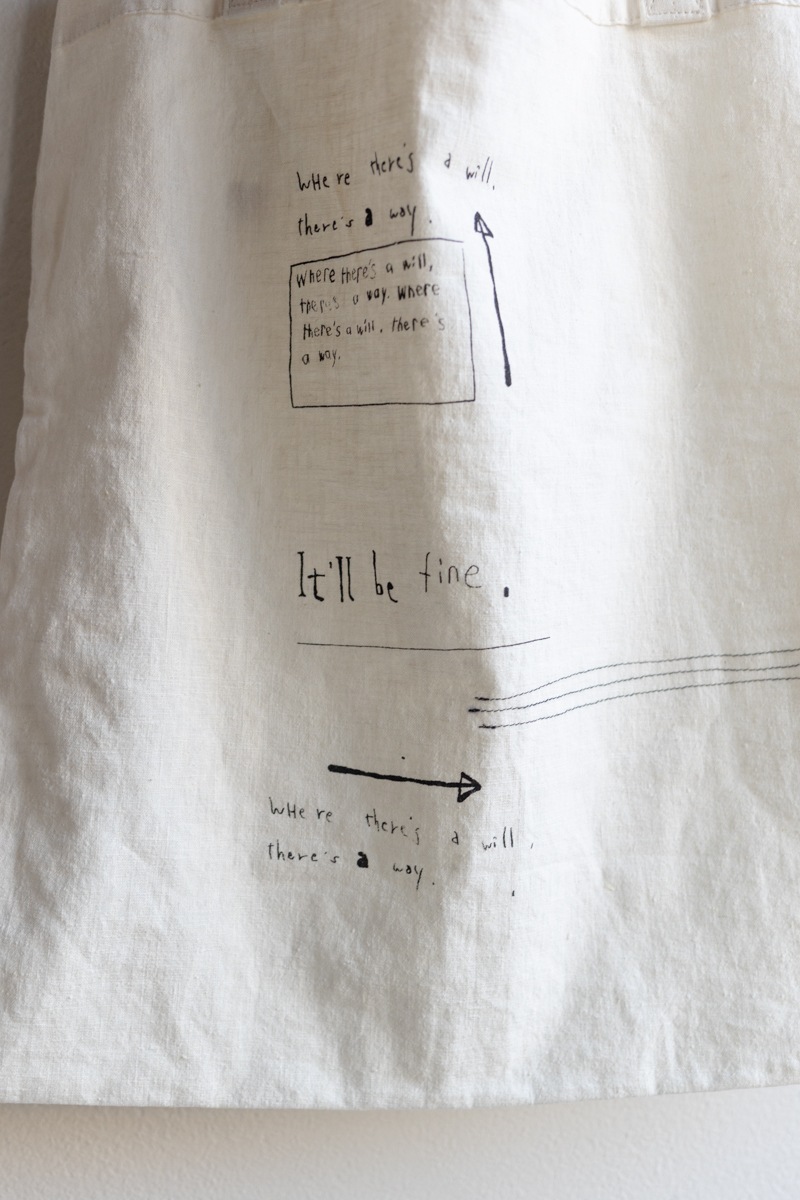 WHere there's a will,
there's a way.
Where there's a will,
there's a way. Where
there's a will, there's
a way.
It'll be fine.
WHere there's a will,
there's a way.